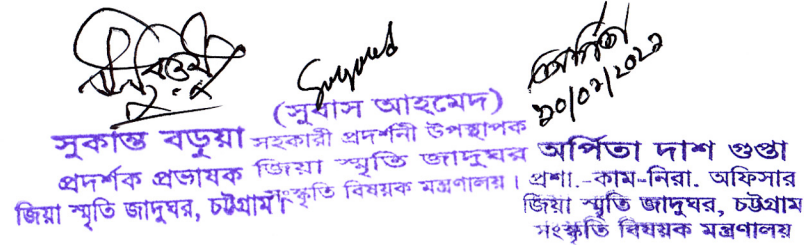 সুকান্ত বড়ুয়া
প্রদর্শক প্রভাষক
জিয়া স্মৃতি জাদুঘর, চট্টগ্রাম।
(সুবাস আহমেদ)
সহকারী প্রদর্শনী উপস্থাপক
জিয়া স্মৃতি জাদুঘর
সংস্কৃতি বিষয়ক মন্ত্রণালয়।
অর্পিতা
অর্পিতা দাশ গুপ্তা
প্রশা.-কাম-নিরা. অফিসার
জিয়া স্মৃতি জাদুঘর, চট্টগ্রাম
সংস্কৃতি বিষয়ক মন্ত্রণালয়